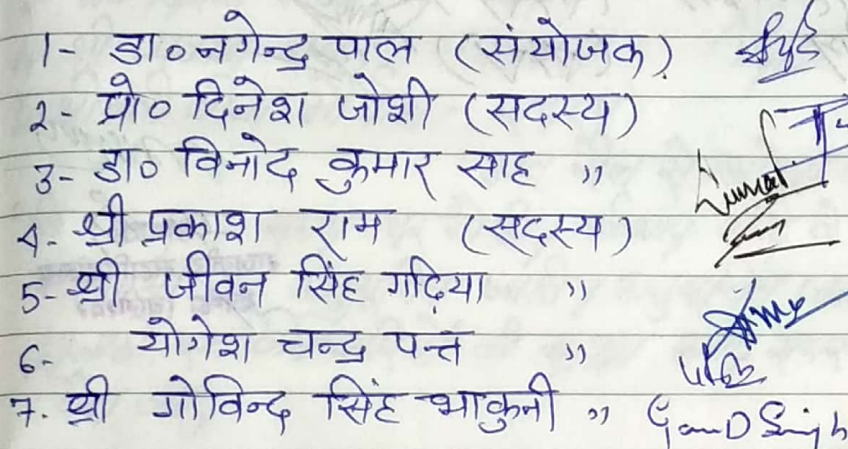 1- डा० नगेन्द्र पाल (संयोजक)
2- प्रो० दिनेश जोशी (सदस्य)
3- डॉ० विनोद कुमार साह "
4- श्री प्रकाश राम (सदस्य)
5- श्री जीवन सिंह गढ़िया "
6- योगेश चन्द्र पन्त "
7. श्री गोविन्द सिंह भाकुनी " Singh